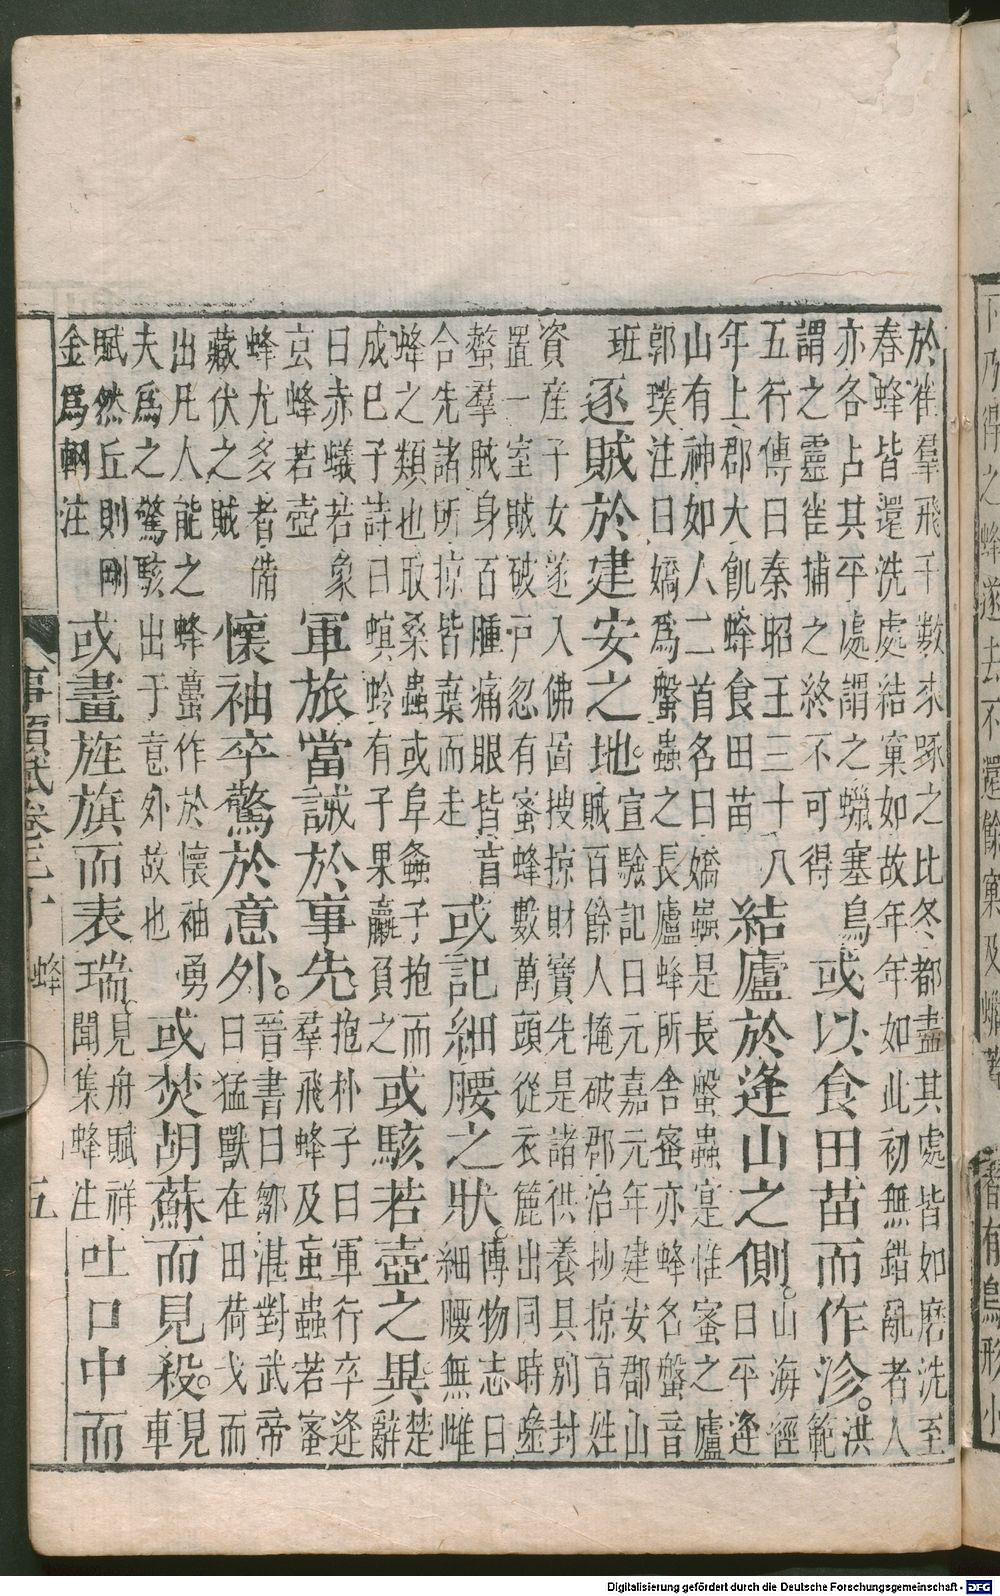 於雀羣飛千數來啄之比冬都盡其處皆如磨洗至
春蜂皆還洗處結窠如故年年如此初無錯亂者人
亦各占其平處謂之蠟塞
謂之靈雀捕之終不可得
鳥或以食田苗而作沴。
洪範
五行傳曰秦昭王三十八
年上郡大飢蜂食田苗
結廬於逢山之側。
山海經
曰平逢
山有神如人二首名曰嬌蟲是長螫蟲寔惟蜜之廬
郭璞注曰嬌爲螫蟲之長廬蜂所舍蜜亦蜂名螫音
班
逐賊於建安之地。
宣驗記曰元嘉元年建安郡山
賊百餘人掩破郡治抄掠百姓
資産子女遂入佛圖搜掠財寶先是諸供養具別封
置一室賊破戸忽有蜜蜂數萬頭從衣簏出同時螫
螫羣賊身百腫痛眼皆盲
合先諸所掠皆棄而走
或記細腰之狀。
博物志曰
細腰無雌
蜂之類也取桑蟲或阜螽子抱而
成巳子詩曰螟蛉有子果蠃負之
或駭若壺之異。
楚辭
曰赤蟻若象
玄蜂若壺
軍旅當誡於事先
抱朴子曰軍行卒逢
羣飛蜂及䖟蟲若蜜
蜂尤多者備
藏伏之賊
懷袖卒驚於意外。
晉書曰鄒湛對武帝
曰猛獸在田荷戈而
出凡人能之蜂蠆作於懷袖勇
夫爲之驚駭出于意外故也
或焚胡蘇而見殺。
見車
賦然丘則剛
金爲輞注
或畫旌旗而表瑞。
見舟賦祥
聞集蜂注
吐口中而
事類賦卷三十
蜂
五